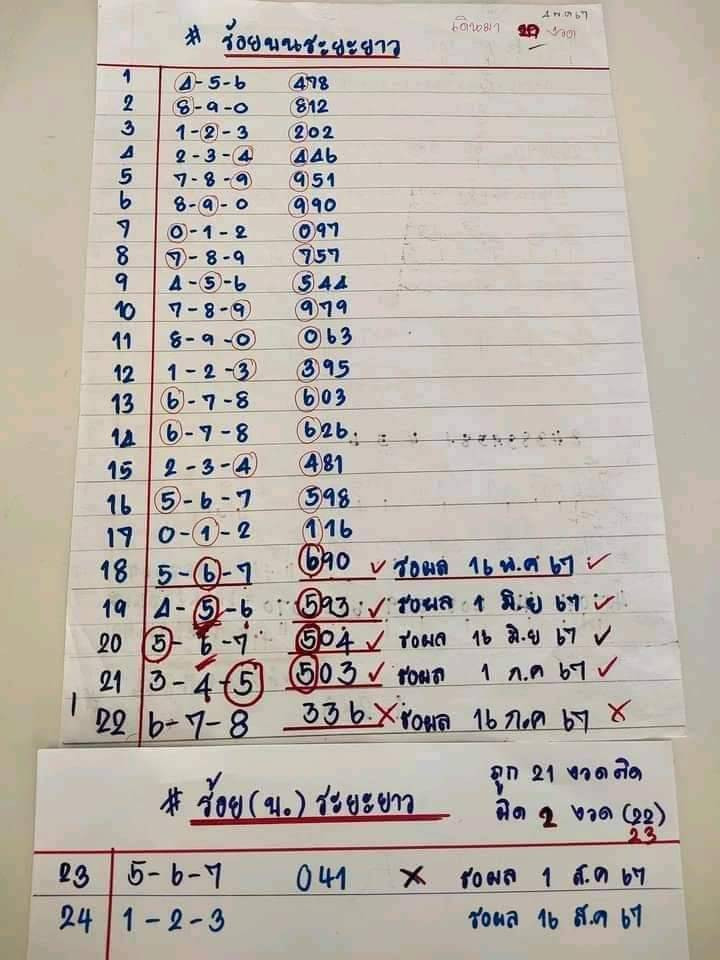 4 พ.ค 67
# ร้อยบนระยะยาว เดินมา 20 งวด
1 4-5-6 478
2 8-9-0 812
3 1-2-3 202
4 2-3-4 446
5 7-8-9 951
6 8-9-0 990
7 0-1-2 097
8 7-8-9 757
9 4-5-6 544
10 7-8-9 979
11 8-9-0 063
12 1-2-3 395
13 6-7-8 603
14 6-7-8 626
15 2-3-4 481
16 5-6-7 598
17 0-1-2 116
18 5-6-7 690 ✓ รอผล 16 พ.ค 67 ✓
19 4-5-6 593 ✓ รอผล 1 มิ.ย 67 ✓
20 5-6-7 504 ✓ รอผล 16 มิ.ย 67 ✓
21 3-4-5 503 ✓ รอผล 1 ก.ค 67 ✓
22 6-7-8 336. ✗ รอผล 16 ก.ค 67 ✗
ถูก 21 งวดติด
# ร้อย(บ.) ระยะยาว ผิด 2 งวด (22)
23
23 5-6-7 041 ✗ รอผล 1 ส.ค 67
24 1-2-3 รอผล 16 ส.ค 67